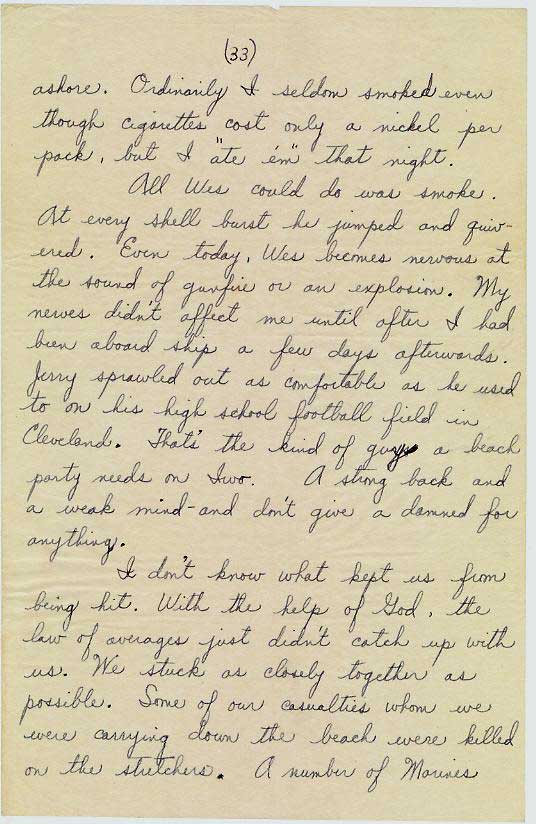 (33)
ashore. Ordinarily I seldom smoked even
though cigarettes cost only a nickel per
pack, but I "ate 'em" that night.
All Wes could do was smoke.
At every shell burst he jumped and quiv-
ered. Even today, Wes becomes nervous at
the sound of gunfire or an explosion. My
nerves didn't affect me until after I had
been aboard ship a few days afterwards.
Jerry sprawled out as comfortable as he used
to on his high school football field in
Cleveland. That's the kind of guy a beach
party needs on Iwo. A strong back and
a weak mind-and don't give a damned for
anything.
I don't know what kept us from
being hit. With the help of God, the
law of averages just didn't catch up with
us. We stuck as closely together as
possible. Some of our casualties whom we
were carrying down the beach were killed
on the stretchers. A number of Marines